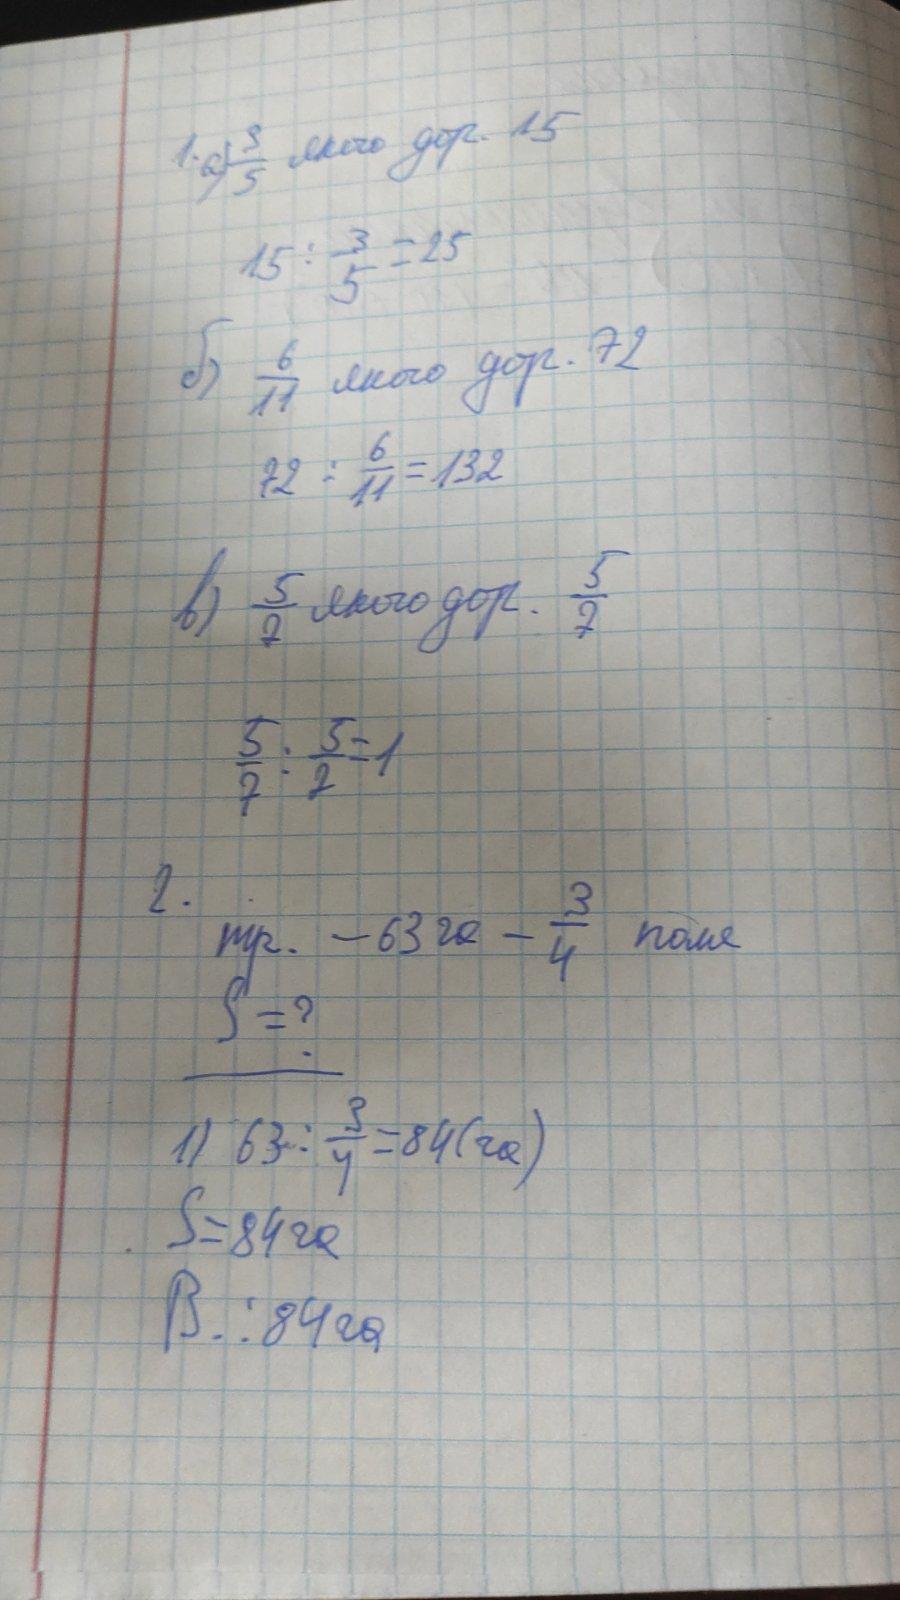 1. а) 3/5 якого дор. 15
15 : 3/5 = 25
б) 6/11 якого дор. 72
72 : 6/11 = 132
в) 5/7 якого дор. 5/7
5/7 : 5/7 = 1
2.
тр. – 63 га – 3/4 поля
S = ?
1) 63 : 3/4 = 84 (га)
S = 84 га
В.: 84 га